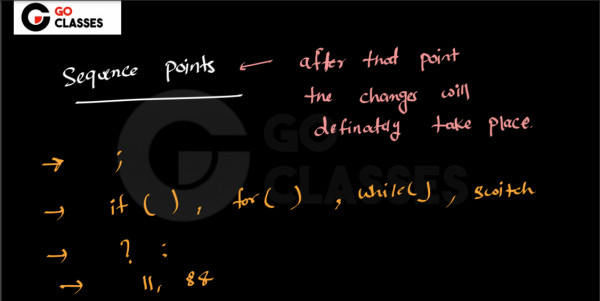 GO
CLASSES
Sequence points ← after that point
the changes will
definately take place.
GO
CLASSES
→ ;
→ if ( ), for ( ), while( ), switch
→ ? :
→ ||, &&